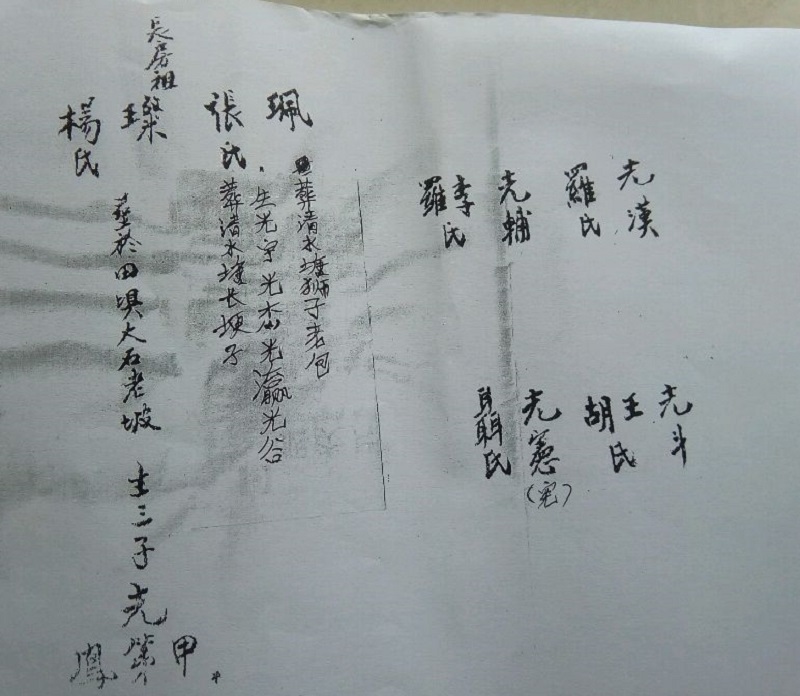 光漢
羅氏
光輔
李羅氏
光斗
王胡氏
光憲
(宪)
聶氏
珮
葬清水塘狮子老包
生光宇光杰光瀛光谷
張氏
葬清水塘长埂子
長房祖
璨
楊氏
葬於田埧大石老坡 生三子光
甲
鳳